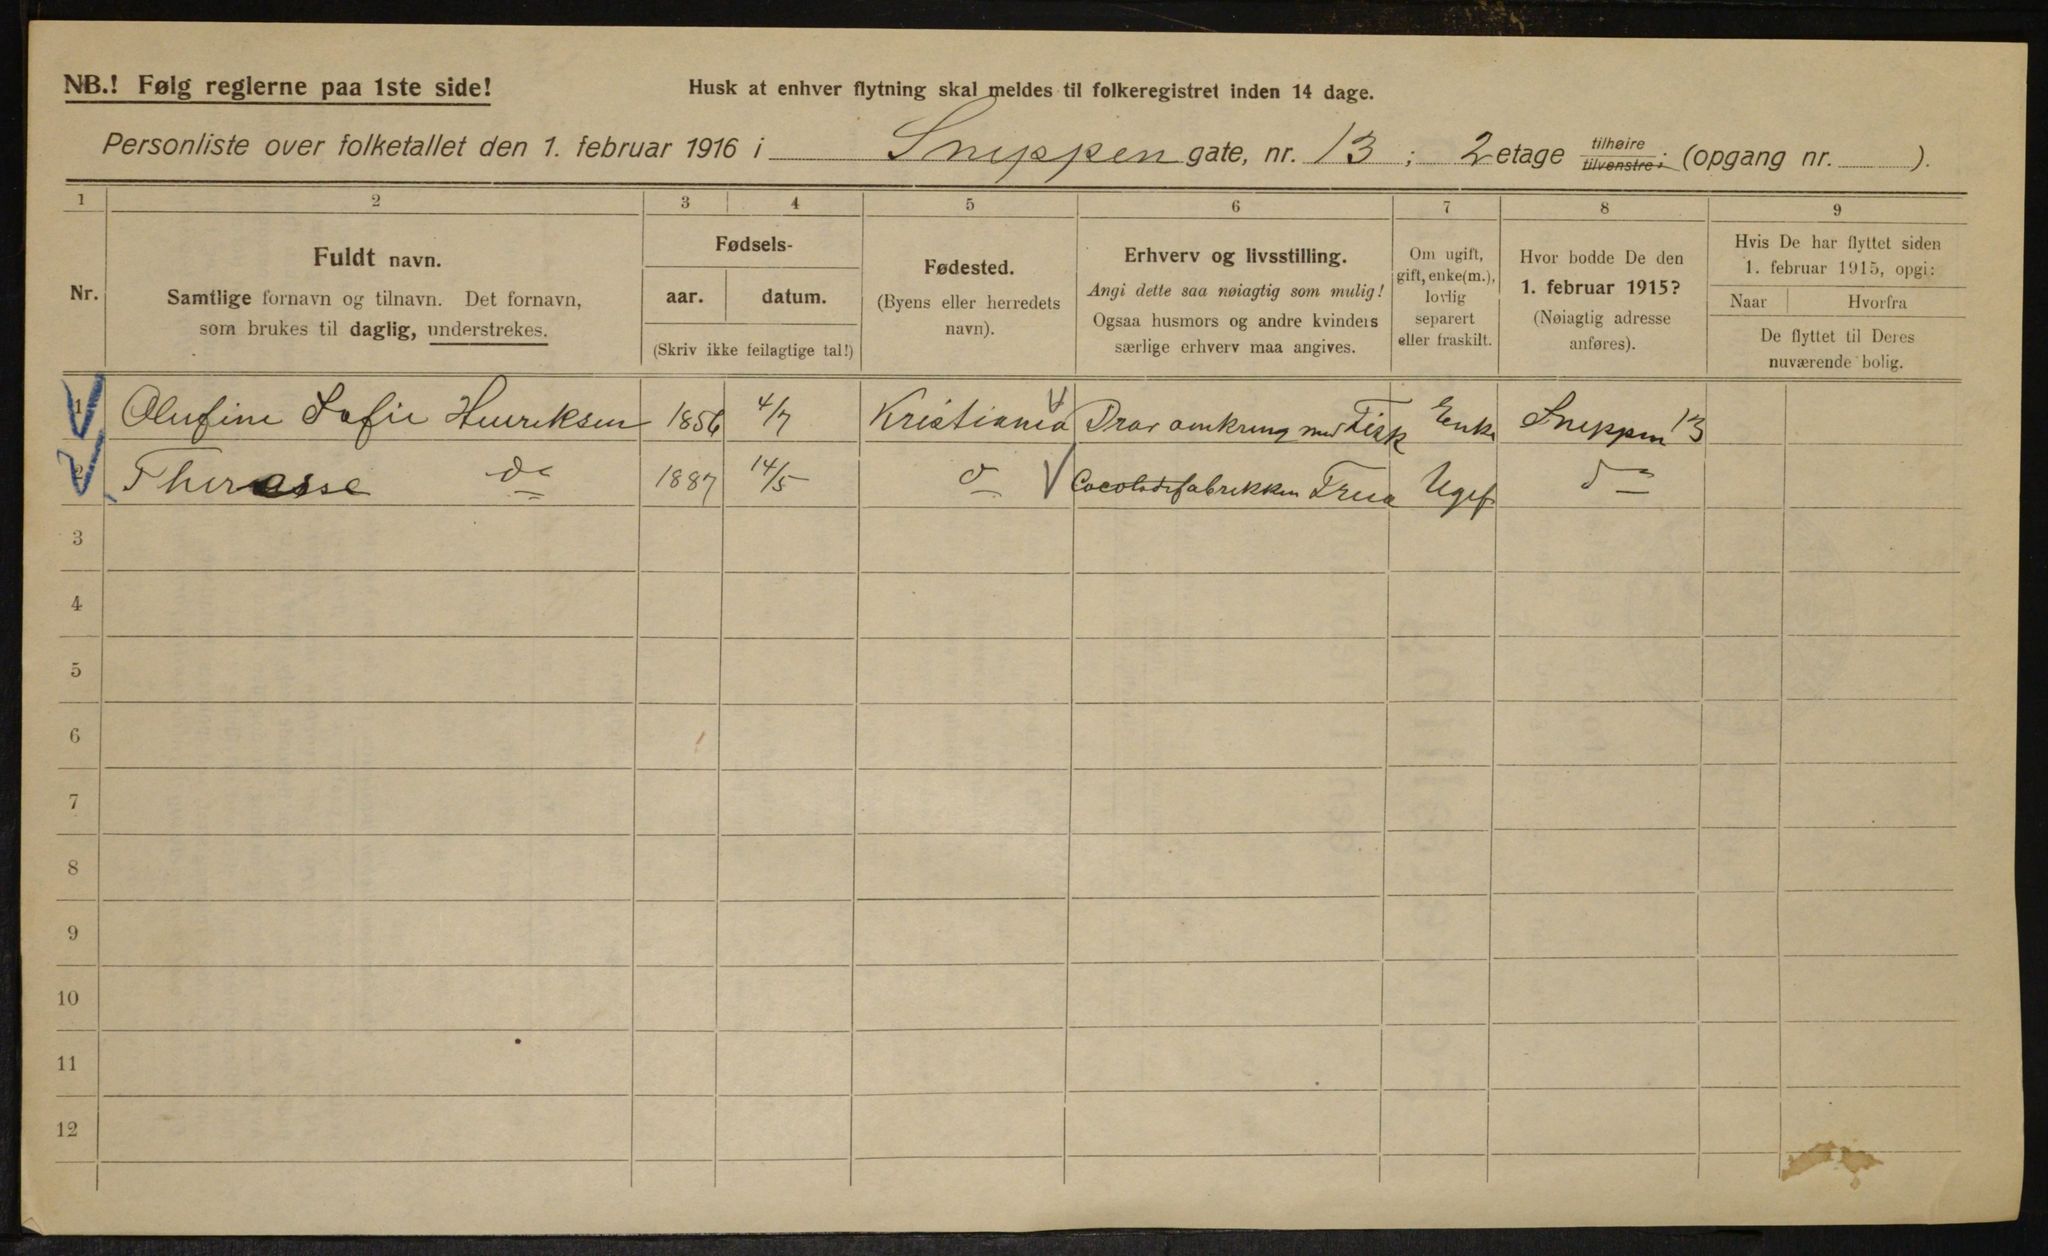 NB.! Følg reglerne paa 1ste side!
Husk at enhver flytning skal meldes til folkeregistret inden 14 dage.
Personliste over folketallet den 1. februar 1916 i Sneppen gate, nr. 13 ; 2 etage tilhøire tilvenstre; (opgang nr. ).
1 2 3 4 5 6 7 8 9
Nr.
Fuldt navn.
Samtlige fornavn og tilnavn. Det fornavn,
som brukes til daglig, understrekes.
Fødsels-
aar. datum.
(Skriv ikke feilagtige tal!)
Fødested.
(Byens eller herredets
navn).
Erhverv og livsstilling.
Angi dette saa nøiagtig som mulig!
Ogsaa husmors og andre kvinders
særlige erhverv maa angives.
Om ugift,
gift, enke(m.),
lovlig
separert
eller fraskilt.
Hvor bodde De den
1. februar 1915?
(Nøiagtig adresse
anføres).
Hvis De har flyttet siden
1. februar 1915, opgi:
Naar Hvorfra
De flyttet til Deres
nuværende bolig.
1 Olufine Sofie Henriksen 1856 4/7 Kristiania Drar omkring med Fisk Enke Sneppen 13
2 Therasse do 1887 14/5 do Cocoladefabrikken Freia Ugift do
3
4
5
6
7
8
9
10
11
12